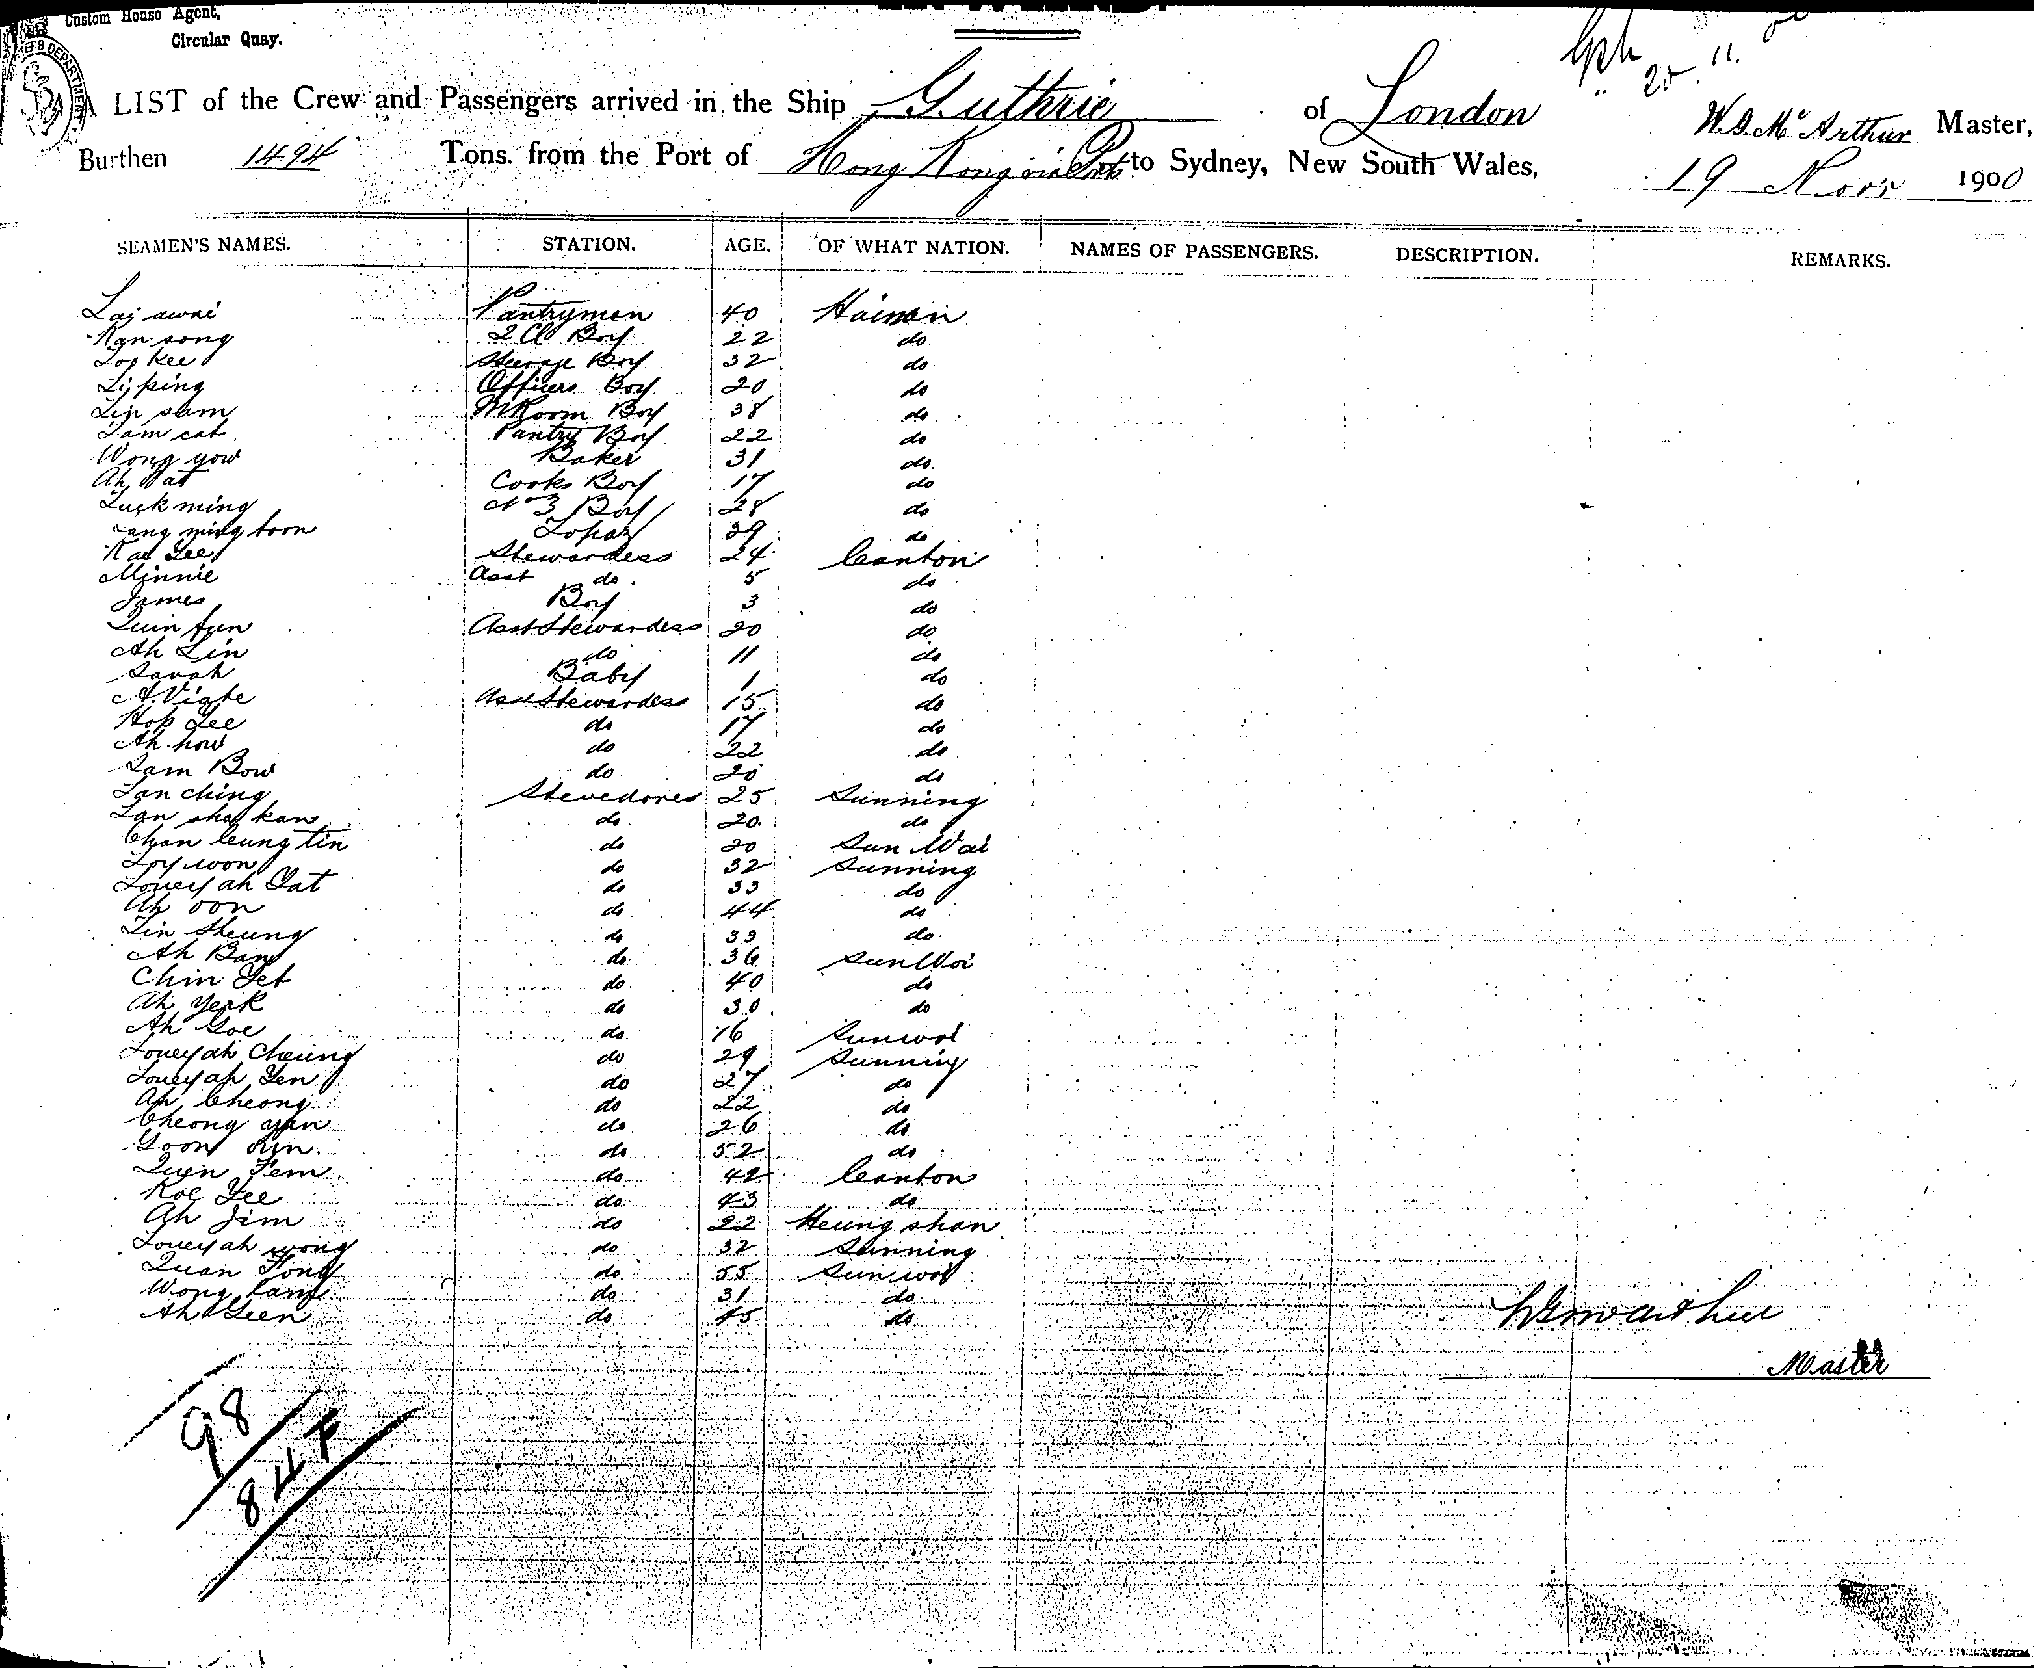 Custom House Agent,
Circular Quay.
A LIST of the Crew and Passengers arrived in the Ship Guthrie of London W. G. Mc Arthur Master,
Burthen 1494 Tons. from the Port of Hong Kong via Ports to Sydney, New South Wales, 19 Novr 1900
SEAMEN'S NAMES. STATION. AGE. OF WHAT NATION. NAMES OF PASSENGERS. DESCRIPTION. REMARKS.
Lai awai Pantryman 40 Hainan
Kan song 2 Cl Boy 22 do
Loo kee Steerage Boy 32 do
Li ping Officers Boy 20 do
Lin sam M Room Boy 38 do
Tam cat Pantry Boy 22 do
Wong yow Baker 31 do
Ah Cooks Boy 17 do
Luck ming No 3 Boy 28 do
ming toon Topaz 39 do
Kae Lee Stewardess 24 Canton
Minnie Asst do 5 do
James Boy 3 do
Asst Stewardess 20 do
Ah Lin do 11 do
Sarah Baby 1 do
Asst Stewardess 15 do
Hop Lee do 17 do
Ah how do 22 do
Sam Bow do 20 do
Lan ching Stevedores 25 Sunning
Lan sha kan do 20 do
Chan leung tin do 20 Sun Wai
Loy woon do 32 Sunning
Loueyah Yat do 33 do
Ah oon do 44 do
Lin Sheung do 33 do
Ah Bang do 36 Sun Woi
Chin Yet do 40 do
Ah Yerk do 30 do
Ah Goe do 16 Sunwoi
Loueyah Cheung do 29 Sunning
Loueyah Yen do 27 do
Ah Cheong do 22 do
Cheong yan do 26 do
Goon do 52 do
Quen Fem do 42 Canton
Koe Yee do 43 do
Ah Jim do 22 Heung shan
Loueyah wong do 32 Sunning
Quan Fong do 55 Sun woi
Wong do 31 do
Ah Geen do 45 do
Master
98
84